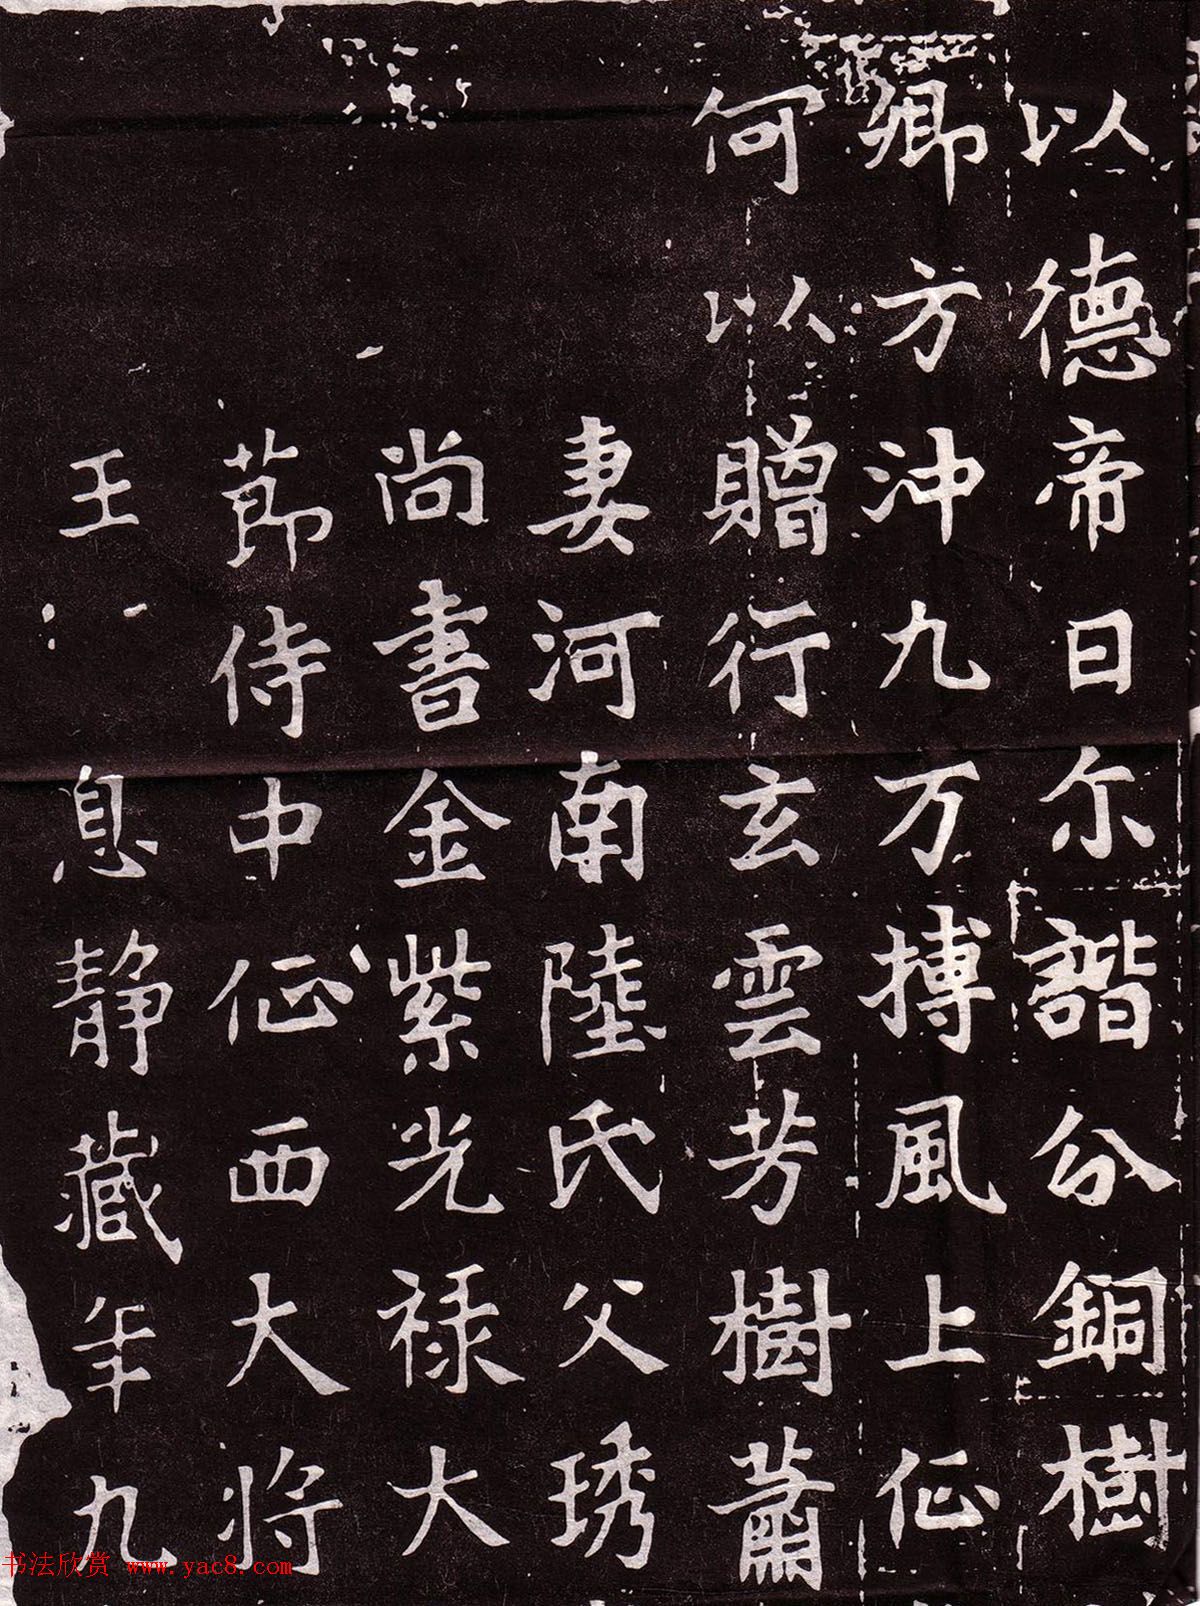 以德帝日尓諧分銅樹
卿方沖九万搏風上征
何以贈行玄雲芳樹蕭
妻河南陸氏父琇
尚書金紫光禄大
莭侍中征西大将
王息静藏年九
书法欣赏 www.yac8.com